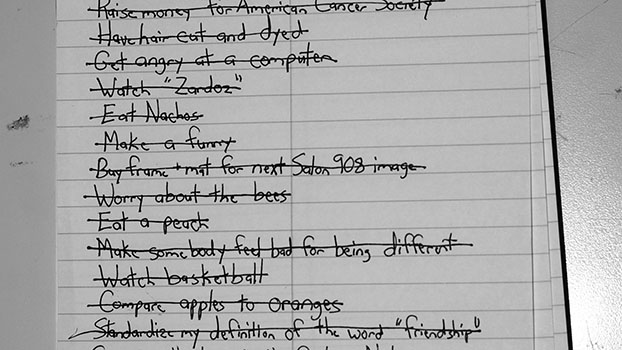 Raise money for American Cancer Society
Have hair cut and dyed
Get angry at a computer
Watch "Zardoz"
Eat Nachos
Make a funny
Buy frame + mat for next Salon 908 image
Worry about the bees
Eat a peach
Make somebody feel bad for being different
Watch basketball
Compare apples to oranges
Standardize my definition of the word "friendship"